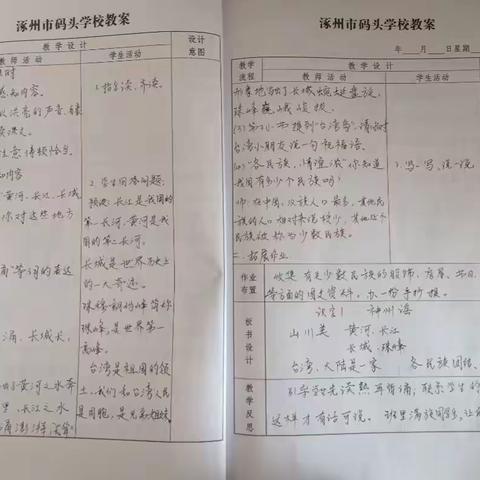 涿州市码头学校教案
教学设计
设计意图
教师活动
学生活动
感知内容。
以洪亮的声音、
读课文。
注意停顿恰当。
知内容
"黄河、长江、长城
你对这些地方
"等词的表达
涌、长城长,
黄河之水奔
里,长江之水
1.指名读、齐读。
2.学生回答问题:
长江是我国的
第一长河,黄河是我
国的第二长河。
长城是世界历史上
的一大奇迹。
珠穆朗玛峰简称
珠峰,是世界第一
高峰。
台湾是祖国的领
土,我们和台湾人民
是同胞,是兄弟姐妹
涿州市码头学校教案
年 月 日星期
教学流程
教学设计
教师活动
学生活动
形象地写出了长城蜿蜒盘旋,
珠峰巍峨峻拔。
台湾小朋友说一句祝福语。
(4)"各民族,情谊浓"你知道
我国有多少个民族吗?
师:在中国,汉族人口最多,其他民
族的人口相对来说较少,其他
民族被称为少数民族。
二、拓展作业
3.写一写、说一说
作业布置
收集有关少数民族的服饰、房屋、节日
等方面的图文资料,办一份手抄报。
板书设计
识字1 神州谣
山川美 黄河、长江
长城、珠峰
台湾、大陆是一家 各民族团结
教学反思
引学生先读熟再背诵,联系学生的
这样才有话可说。班里满族同学,让